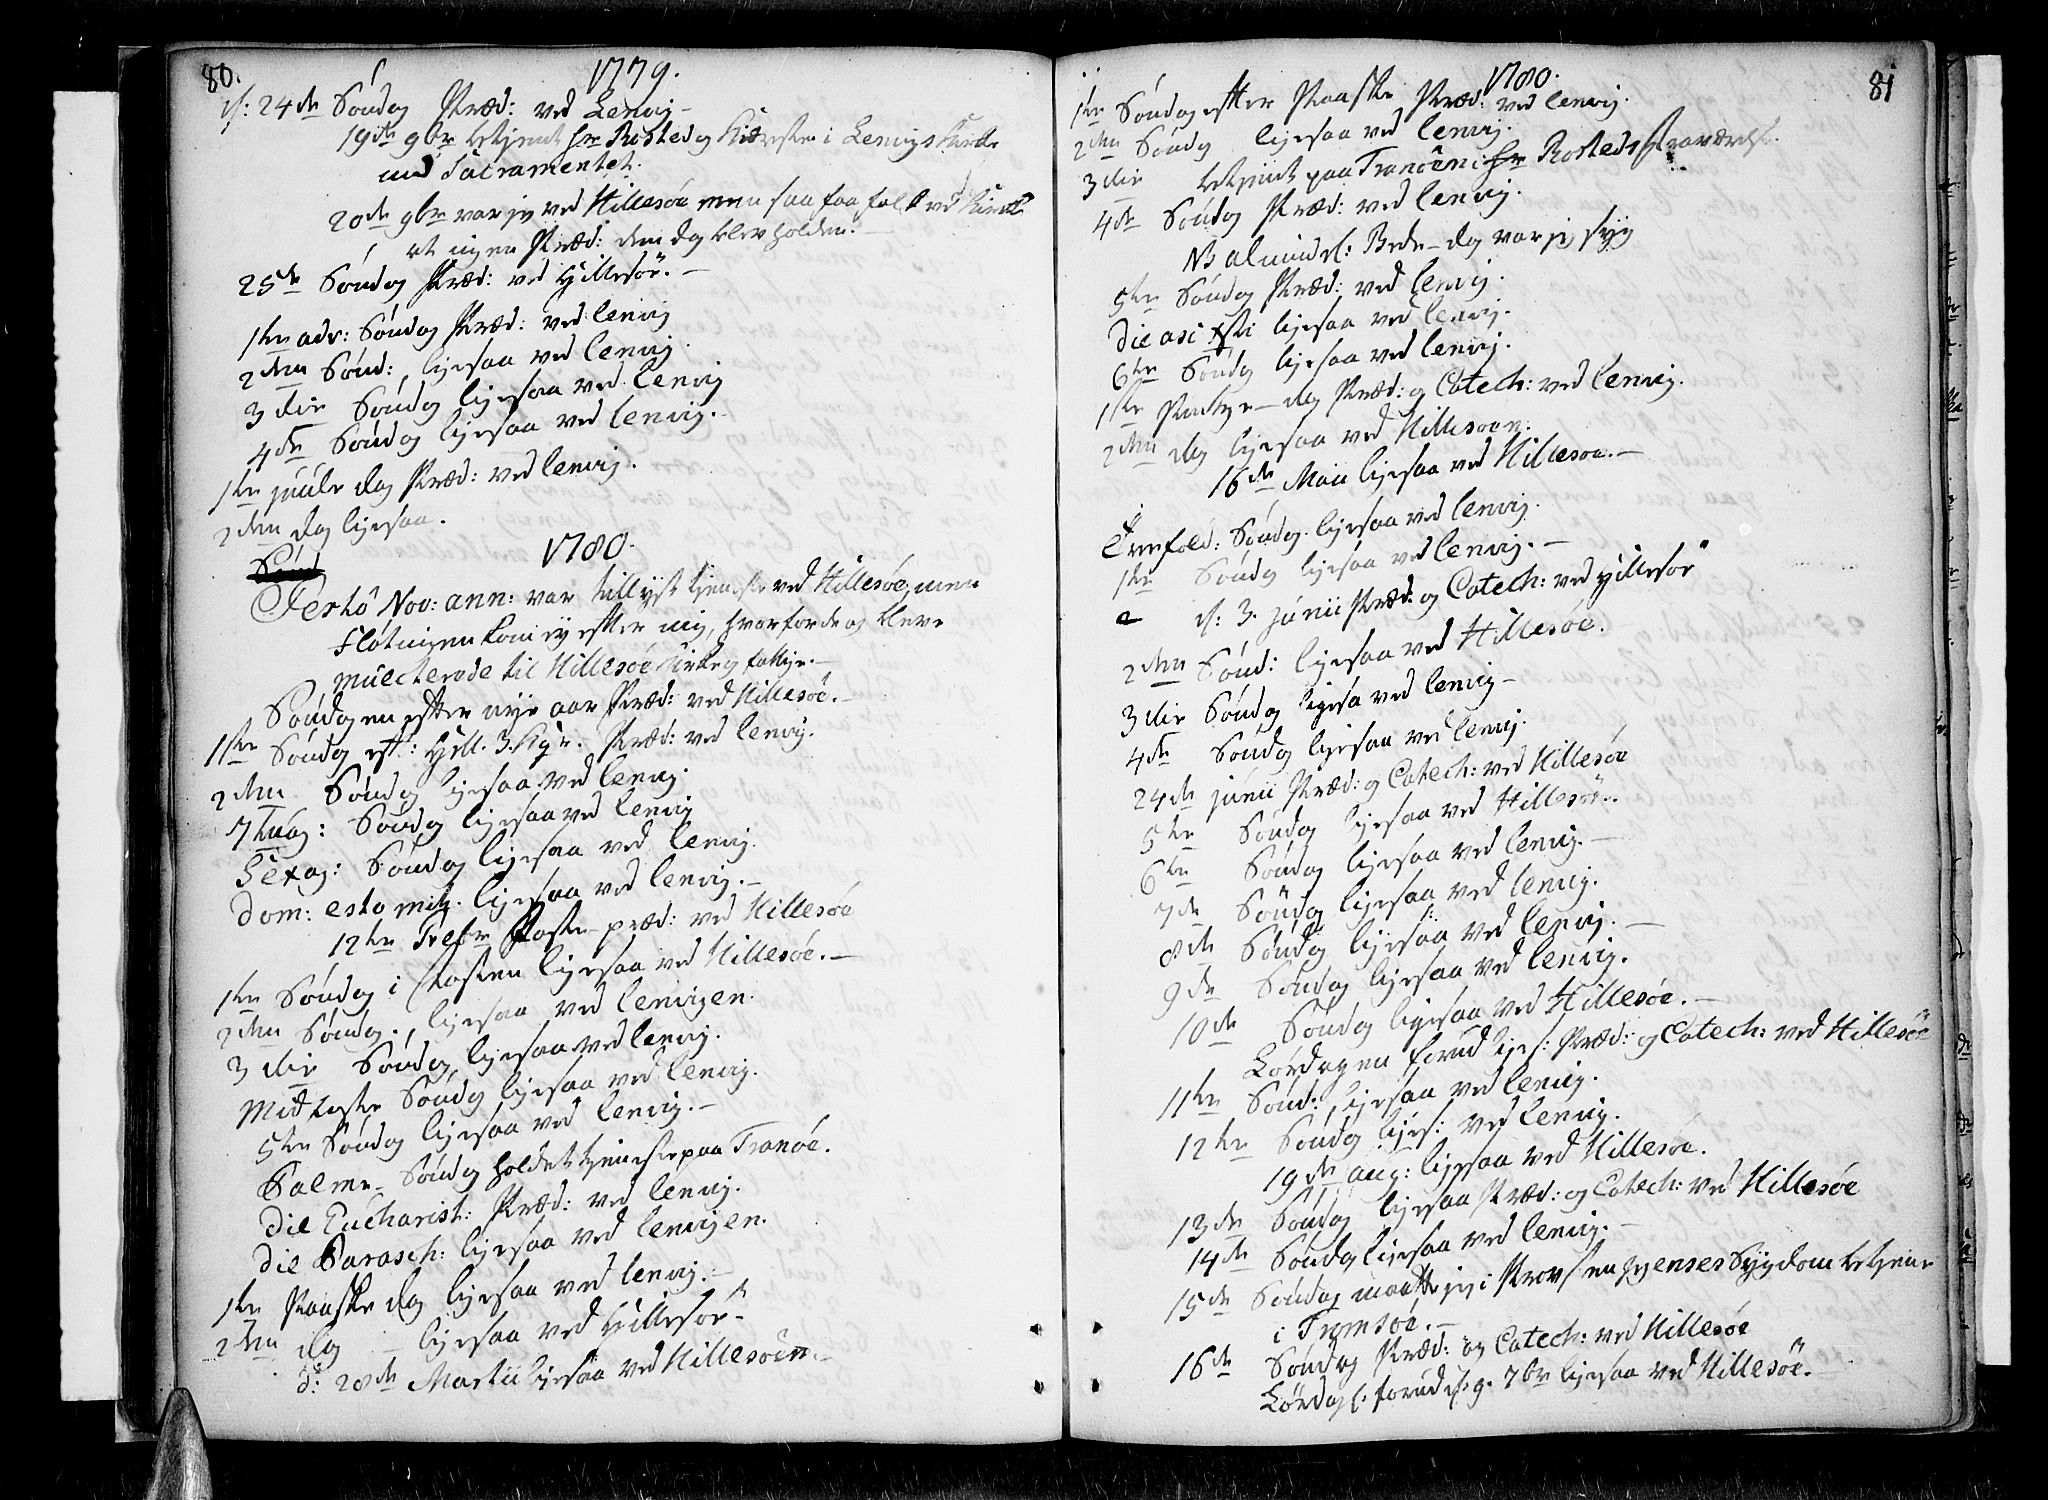 80.
1779.
d: 24de Søndag Præd: ved Lenvig
19de 9br betjent hr Rosted og Kiæreste i Lenvigs Kirke
med Sacramentet.
20de 9br var jeg ved Hillesøe men saa faa folk ved Kirke
at ingen Præd: den dag blev holden.
25de Søndag Præd: ved Hillesöe.
1ste adv: Søndag Præd: ved Lenvig
2den Sønd: ligesaa ved Lenvig.
3die Søndag ligesaa ved Lenvig
4de Søndag ligesaa ved Lenvig.
1ste juule dag Præd: ved Lenvig.
2den dag ligesaa.
1780.
Sønd
Festo Nov: ann: var tillyst tjeneste ved Hillesøe, men
Fløtningen kom ej efter mig, hvorfor de og bleve
mulcterede til Hillesöe Kirke og fattige.
Søndagen efter nye aar Præd: ved Hillesöe.
1ste Søndag eft: Hell. 3. Kgr. Præd: ved Lenvig.
2den Søndag ligesaa ved Lenvig.
7tuag: Søndag ligesaa ved Lenvig
Sexag: Søndag ligesaa ved Lenvig.
Dom: esto mih. ligesaa ved Lenvig.
12te Febr Faste-præd: ved Hillesöe
1ste Søndag i Fasten ligesaa ved Hillesöe.
2den Søndag ligesaa ved Lenvigen.
3die Søndag ligesaa ved Lenvig.
Midfaste Søndag ligesaa ved Lenvig.
5te Søndag ligesaa ved Lenvig.
Palme-Søndag holdet tjeneste paa Tranöe.
Die Eucharist: Præd: ved Lenvig.
Die Parasch: ligesaa ved Lenvigen.
1ste Paaske dag ligesaa ved Lenvig.
2den dag ligesaa ved Hillesöe
d: 28de Martii ligesaa ved Hillesöen.
81
1780.
1ste Søndag efter Paaske Præd: ved Lenvig.
2den Søndag ligesaa ved Lenvig.
3die betjent paa Tranöen i hr Rosteds Fraværelse.
4de Søndag Præd: ved Lenvig.
NB almindel: Bede-dag var jeg syg
5te Søndag Præd: ved Lenvig.
Die asc Xsti ligesaa ved Lenvig.
6te Søndag ligesaa ved Lenvig.
1ste Pintze-dag Præd: og Catech: ved Lenvig.
2den dag ligesaa ved Hillesöen.
16de Maii ligesaa ved Hillesöe.
Treefold: Søndag ligesaa ved Lenvig.
1ste Søndag ligesaa ved Lenvig.
d: 3. junii Præd: og Catech: ved Hillesöe
2den Sønd: ligesaa ved Hillesöe.
3die Søndag ligesa ved Lenvig
4de Søndag ligesaa ved Lenvig.
24de junii Præd: og Catech: ved Hillesöe
5te Søndag ligesaa ved Hillesöe.
6te Søndag ligesaa ved Lenvig.
7de Søndag ligesaa ved Lenvig.
8de Søndag ligesaa ved Lenvig.
9de Søndag ligesaa ved Lenvig.
10de Søndag ligesaa ved Hillesöe.
Lørdagen forud liges: Præd: og Catech: ved Hillesöe
11te Sønd: ligesaa ved Lenvig.
12te Søndag liges: ved Lenvig.
19de aug: ligesaa ved Hillesöe.
13de Søndag ligesaa Præd: og Catech: ved Hillesöe
14de Søndag ligesaa ved Lenvig.
15de Søndag maatte jeg i Provsten Hejenses Sygdom betjene
i Tromsöe.
16de Søndag Præd: og Catech: ved Hillesöe
Lørdag forud d: 9. 7br ligesaa ved Hillesöe.